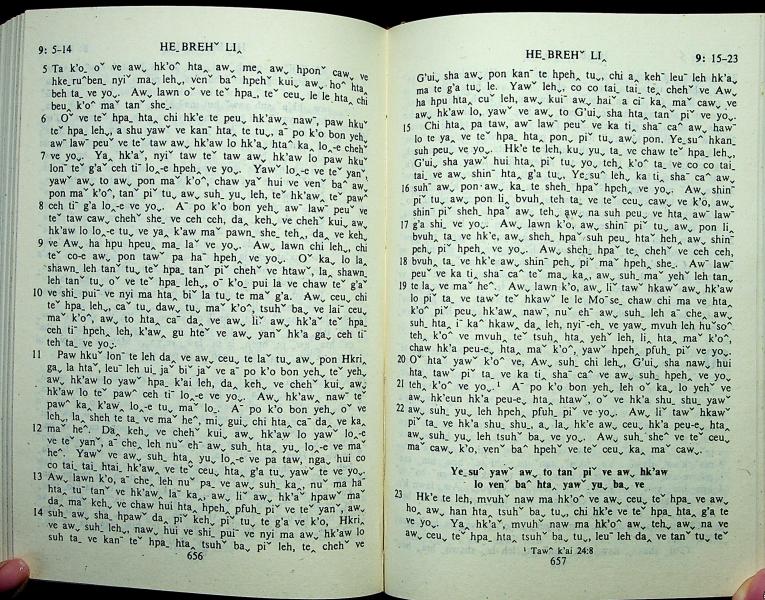 9: 5-14 HE_ BREHˇ LIꞈ
5 Ta k'o. oˇ ve awˬ hk'oˆ htaꞈ awˬ meꞈ awˬ hponˇ cawˬ ve
hkeˬruˆbenˬ nyiˇ maˬ lehˬ, venˇ baˆ hpehˇ kuiˬ awˬ hoˆ htaˇ
behˬ taˬ ve yoˬ. Awˬ lawn oˇ ve teˇ hpaˍ teˇ ceuˬ le le htaꞈ chi
beuˬ k'oˆ maˇ tanˇ sheˍ.
6 Oˇ ve teˇ hpaˍ htaꞈ chi hk'e te peuˬ hk'awˬ nawˉ, paw hku
teˇ hpaˍ lehˬ, a shu yawˇ ve kanˇ htaˬ te tuˬ, aˉ po k'o bon yeh
awˉ lawˇ peuˇ ve teˇ taw awˬ hk'aw lo hk'aˬ htaˆ kaˬ loˬ-e cheˇ
7 ve yoˬ. Yaˬ hk'aˇ, nyiˇ taw teˇ taw awˬ hk'aw lo paw hku
lonˉ teˇ g'aˇ ceh tiˉ loˬ-e hpehˬ ve yoˬ. Yawˇ loˬ-e ve teˇ yanˇ
yawˇ awˬ to awˬ pon maˇ k'oˆ, chaw yaˇ hui ve venˇ baˆ awˬ
pon maˇ k'oˆ, tanˇ piˇ tuˬ awˬ suhˬ yuˬ leh, teˇ hk'awˬ teˇ paw
8 ceh tiˉ g'a loˬ-e ve yoˬ. Aˉ po k'o bon yeh awˉ lawˇ peuˇ ve
te taw cawˬ chehˇ she_ ve ceh ceh, daˬ kehˬ ve chehˇ kui awˬ
hk'aw lo loˬ-e tuˬ ve yaˬ k'aw maˇ pawn_ she_ tehˬ, daˬ ve kehˬ
9 ve Awˬ ha hpu hpeuˬ maˬ laˇ ve yoˬ. Awˬ lawn chi lehˬ, chi
teˇ co-e awˬ pon tawˇ pa haˉ hpehˬ ve yoˬ. Oˇ kaˬ lo laˬ
shawnˬ leh tanˇ tuˬ teˇ hpaˍ tanˇ piˇ chehˇ ve htawˇ, laˬ shawnˬ
leh tanˇ tuˬ oˇ ve teˇ hpaˍ lehˬ, oˉ k'oˬ pui la ve chaw teˇ g'aˇ
10 ve shiˬ puiˉ ve nyi ma htaꞈ biˇ la tuˬ te maˇ g'aˬ. Awˬ ceuˬ chi
teˇ hpaˍ lehˬ, caˇ tuˬ dawˬ tuˬ maˇ k'oˆ, tsuhˇ baˬ ve laiˉ ceuˬ
maˇ k'oˆ, awˬ to htaꞈ caˆ daˬ ve awˬ liˇ awˬ hk'aˇ teˇ hpaˍ
ceh tiˉ hpehˬ leh, k'awˬ gu hteˇ ve awˬ yanˇ hk'a gaˬ ceh tiˉ
teh taˍ ve yoˬ.
11 Paw hkuˇ lonˉ te leh daˬ ve awˬ ceuˬ te laˇ tuˬ awˬ pon Hkriˬ
gaˬ la htaˇ, leuˉ leh uiˬ jaˇ biˇ jaˇ ve aˉ po k'o bon yehˬ teˇ yehˬ
awˬ hk'aw lo yawˇ hpaˍ k'ai lehˬ daˬ kehˬ ve chehˇ kuiˬ awˬ
hk'aw lo teˇ pawˆ ceh tiˉ loˬ-e ve yoˬ. Awˬ hk'awˬ nawˉ teˇ
pawˆ kaˬ k'awˬ loˬ-e tuˬ maˇ loˬ. Aˉ po k'o bon yehˬ oˇ ve
lehˬ, laˬ sheh te taˍ ve maˇ heˆ, miˬ guiˬ chi htaˬ caˉ daˬ ve kaˬ
12 maˇ heˆ. Daˬ kehˬ ve chehˇ kuiˬ awˬ hk'aw lo yawˇ loˬ-e
ve teˇ yanˇ, aˉ cheˬ leh nuˇ ehˉ awˬ suhˍ htaꞈ yuˬ loˬ-e ve maˇ
heˆ. Yawˇ ve awˬ suhˍ htaꞈ yuˬ loˬ-e ve pa taw, ngaˬ hui co
co taiˍ taiˍ htaiˬ hk'awˬ ve teˇ ceuˬ htaꞈ g'a tuˬ yawˇ te ve yoˬ.
13 Awˬ lawn k'o, aˉ cheˬ leh nuˇ paˬ ve awˬ suhˍ kaˬ, nuˇ ma haˆ
htaꞈ tuˉ tanˇ ve hk'awˬ laˉ kaˬ, awˬ liˇ awˬ hk'aˇ hpawˇ maˇ
daˬ maˇ kehˬ ve chaw hui htaꞈ hpehˬ pfuhˬ piˇ ve teˇ yanˇ, awˬ
14 suhˍ awˬ shaˬ hpawˇ daˬ piˇ kehˬ piˇ tuˬ te g'a ve k'o, Hkriˬ
ve awˬ suhˍ lehˬ, nawˬ hui ve shiˬ puiˉ ve nyi ma awˬ hk'aw lo
suh taˍ ve kanˉ teˇ hpaˍ htaꞈ tsuhˇ baˬ piˇ leh, teˬ chehˇ ve
656
HE_ BREHˇ LIꞈ 9: 15-23
G'uiˬ sha awˬ pon kanˉ te hpehˬ tuˬ, chi aˬ kehˉ leuˉ leh hk'aˬ
ma te g'a tuˬ le. Yawˇ lehˬ, co co taiˍ taiˍ teˬ chehˇ ve Awˬ
ha hpu htaꞈ cuˇ leh, awˬ kuiˬ awˬ haiˇ a ciˉ kaˬ maˇ cawˬ ve
awˬ hk'aw lo, yawˇ ve awˬ to G'uiˬ sha htaꞈ tanˇ piˇ ve yoˬ.
15 Chi htaꞈ pa taw, awˉ lawˇ peuˇ ve ka tiˬ shaˉ caˆ awˬ hawˇ
lo te yaˬ ve teˇ hpaˍ htaꞈ ponˬ piˇ tuˬ awˬ pon, Ye_ suˆ hkanˬ
suh peuˬ ve yoˬ. Hk'e te leh, kuˬ yuˬ taˬ ve chaw teˇ hpaˍ lehˬ,
G'uiˬ sha yawˇ hui htaꞈ piˇ tuˬ yoˬ tehˬ k'oˆ taˍ ve co co taiˍ
taiˍ ve awˬ shinˉ htaꞈ g'a tuˬ, Ye_ suˆ lehˬ ka tiˬ shaˉ caˆ awˬ
16 suhˉ awˬ pon awˬ kaˬ te shehˬ hpaˇ hpehˬ ve yoˬ. Awˬ shinˉ
piˇ tuˬ awˬ pon liꞈ bvuhˬ teh taˍ ve teˇ ceuˬ cawˬ ve k'o, awˬ
shinˉ piˇ shehˬ hpaˇ awˬ tehˬ awˬ na suh peuˬ ve htaꞈ awˉ lawˉ
17 g'a shi ve yoˬ. Awˬ lawn k'o, awˬ shinˉ piˇ tuˬ awˬ pon liꞈ
bvuhˬ taˍ ve hk'e, awˬ shehˬ hpaˇ suh peuˬ htaˇ hehˬ awˬ shinˉ
pehˬ piˇ hpehˬ ve yoˬ. Awˬ shehˬ hpaˇ teˬ chehˇ ve ceh ceh,
18 bvuhˬ taˍ ve hk'e awˬ shinˉ pehˬ piˇ maˇ hpehˬ she_. Awˉ lawˇ
peuˇ ve ka tiˬ shaˉ caˆ teˇ maˬ kaˬ, awˬ suhˍ maˇ yehˇ leh tanˬ
19 te laˬ ve maˇ heˆ. Awˬ lawn k'o, awˬ liˇ tawˇ hkawˇ awˬ hk'aw
lo piˇ taˍ ve tawˇ teˇ hkawˇ le le Moˉ se_ chaw chi ma ve htaꞈ
k'oˆ piˇ peuˬ hk'awˬ nawˉ, nuˇ ehˉ awˬ suhˍ leh aˉ cheˬ awˬ
suhˍ htaꞈ iˉ kaˆ hkawˬ daˬ leh, nyiˉ-ehˬ ve yawˬ mvuh leh huˇsoˆ
tehˬ k'oˆ ve mvuhˬ teˇ tsuhˬ htaꞈ yehˇ leh, liˬ htaꞈ maˇ k'oˆ,
chaw hk'a peu-eˬ htaꞈ maˇ k'oˆ, yawˇ hpehˬ pfuhˬ piˇ ve yoˬ.
20 Oˇ htaˇ yawˇ k'oˆ ve, Awˬ suhˍ chi lehˬ, G'uiˬ sha nawˬ hui
htaꞈ tawˇ piˇ taˍ ve ka tiˬ shaˉ caˆ ve awˬ suhˍ hpehˬ ve yoˬ
21 tehˬ k'oˆ ve yoˬ.¹ Aˉ po k'o bon yehˬ leh oˇ kaˬ lo yehˇ ve
awˬ hk'eun hk'a peu-eˬ htaꞈ htawˇ, oˇ ve hk'a shuˬ shuˬ yawˇ
22 awˬ suhˍ yuˬ leh hpehˬ pfuhˬ piˇ ve yoˬ. Awˬ liˇ tawˇ hkawˇ
piˇ taˍ ve hk'a shuˬ shuˬ, aˬ laˬ hk'e awˬ ceuˬ hk'a peu-eˬ htaꞈ
awˬ suhˍ yuˬ leh tsuhˇ baˬ ve yoˬ. Awˬ suhˍ sheˆ ve teˇ ceuˬ
maˇ cawˬ k'o, venˇ baˆ hpehˇ ve teˇ ceuˬ kaˬ maˇ cawˬ.
Ye_ suˆ yawˇ awˬ to tanˇ piˇ ve awˬ hk'aw
lo venˇ baˆ htaꞈ yawˇ yuˬ baˬ ve
23 Hk'e te leh, mvuhˇ naw ma hk'oˆ ve awˬ ceuˬ teˇ hpaˍ ve awˬ
hoˬ awˬ han htaꞈ tsuhˇ baˬ tuˬ, chi hk'e ve teˇ hpaˍ htaꞈ g'a te
ve yoˬ. Yaˬ hk'aˇ, mvuhˇ naw ma hk'oˆ awˬ tehˬ awˬ na ve
awˬ ceuˬ teˇ hpaˍ htaꞈ tsuhˇ baˬ tuˬ, leuˉ leh daˬ ve tanˇ tuˬ teˇ
¹ Tawˆ k'ai 24:8
657